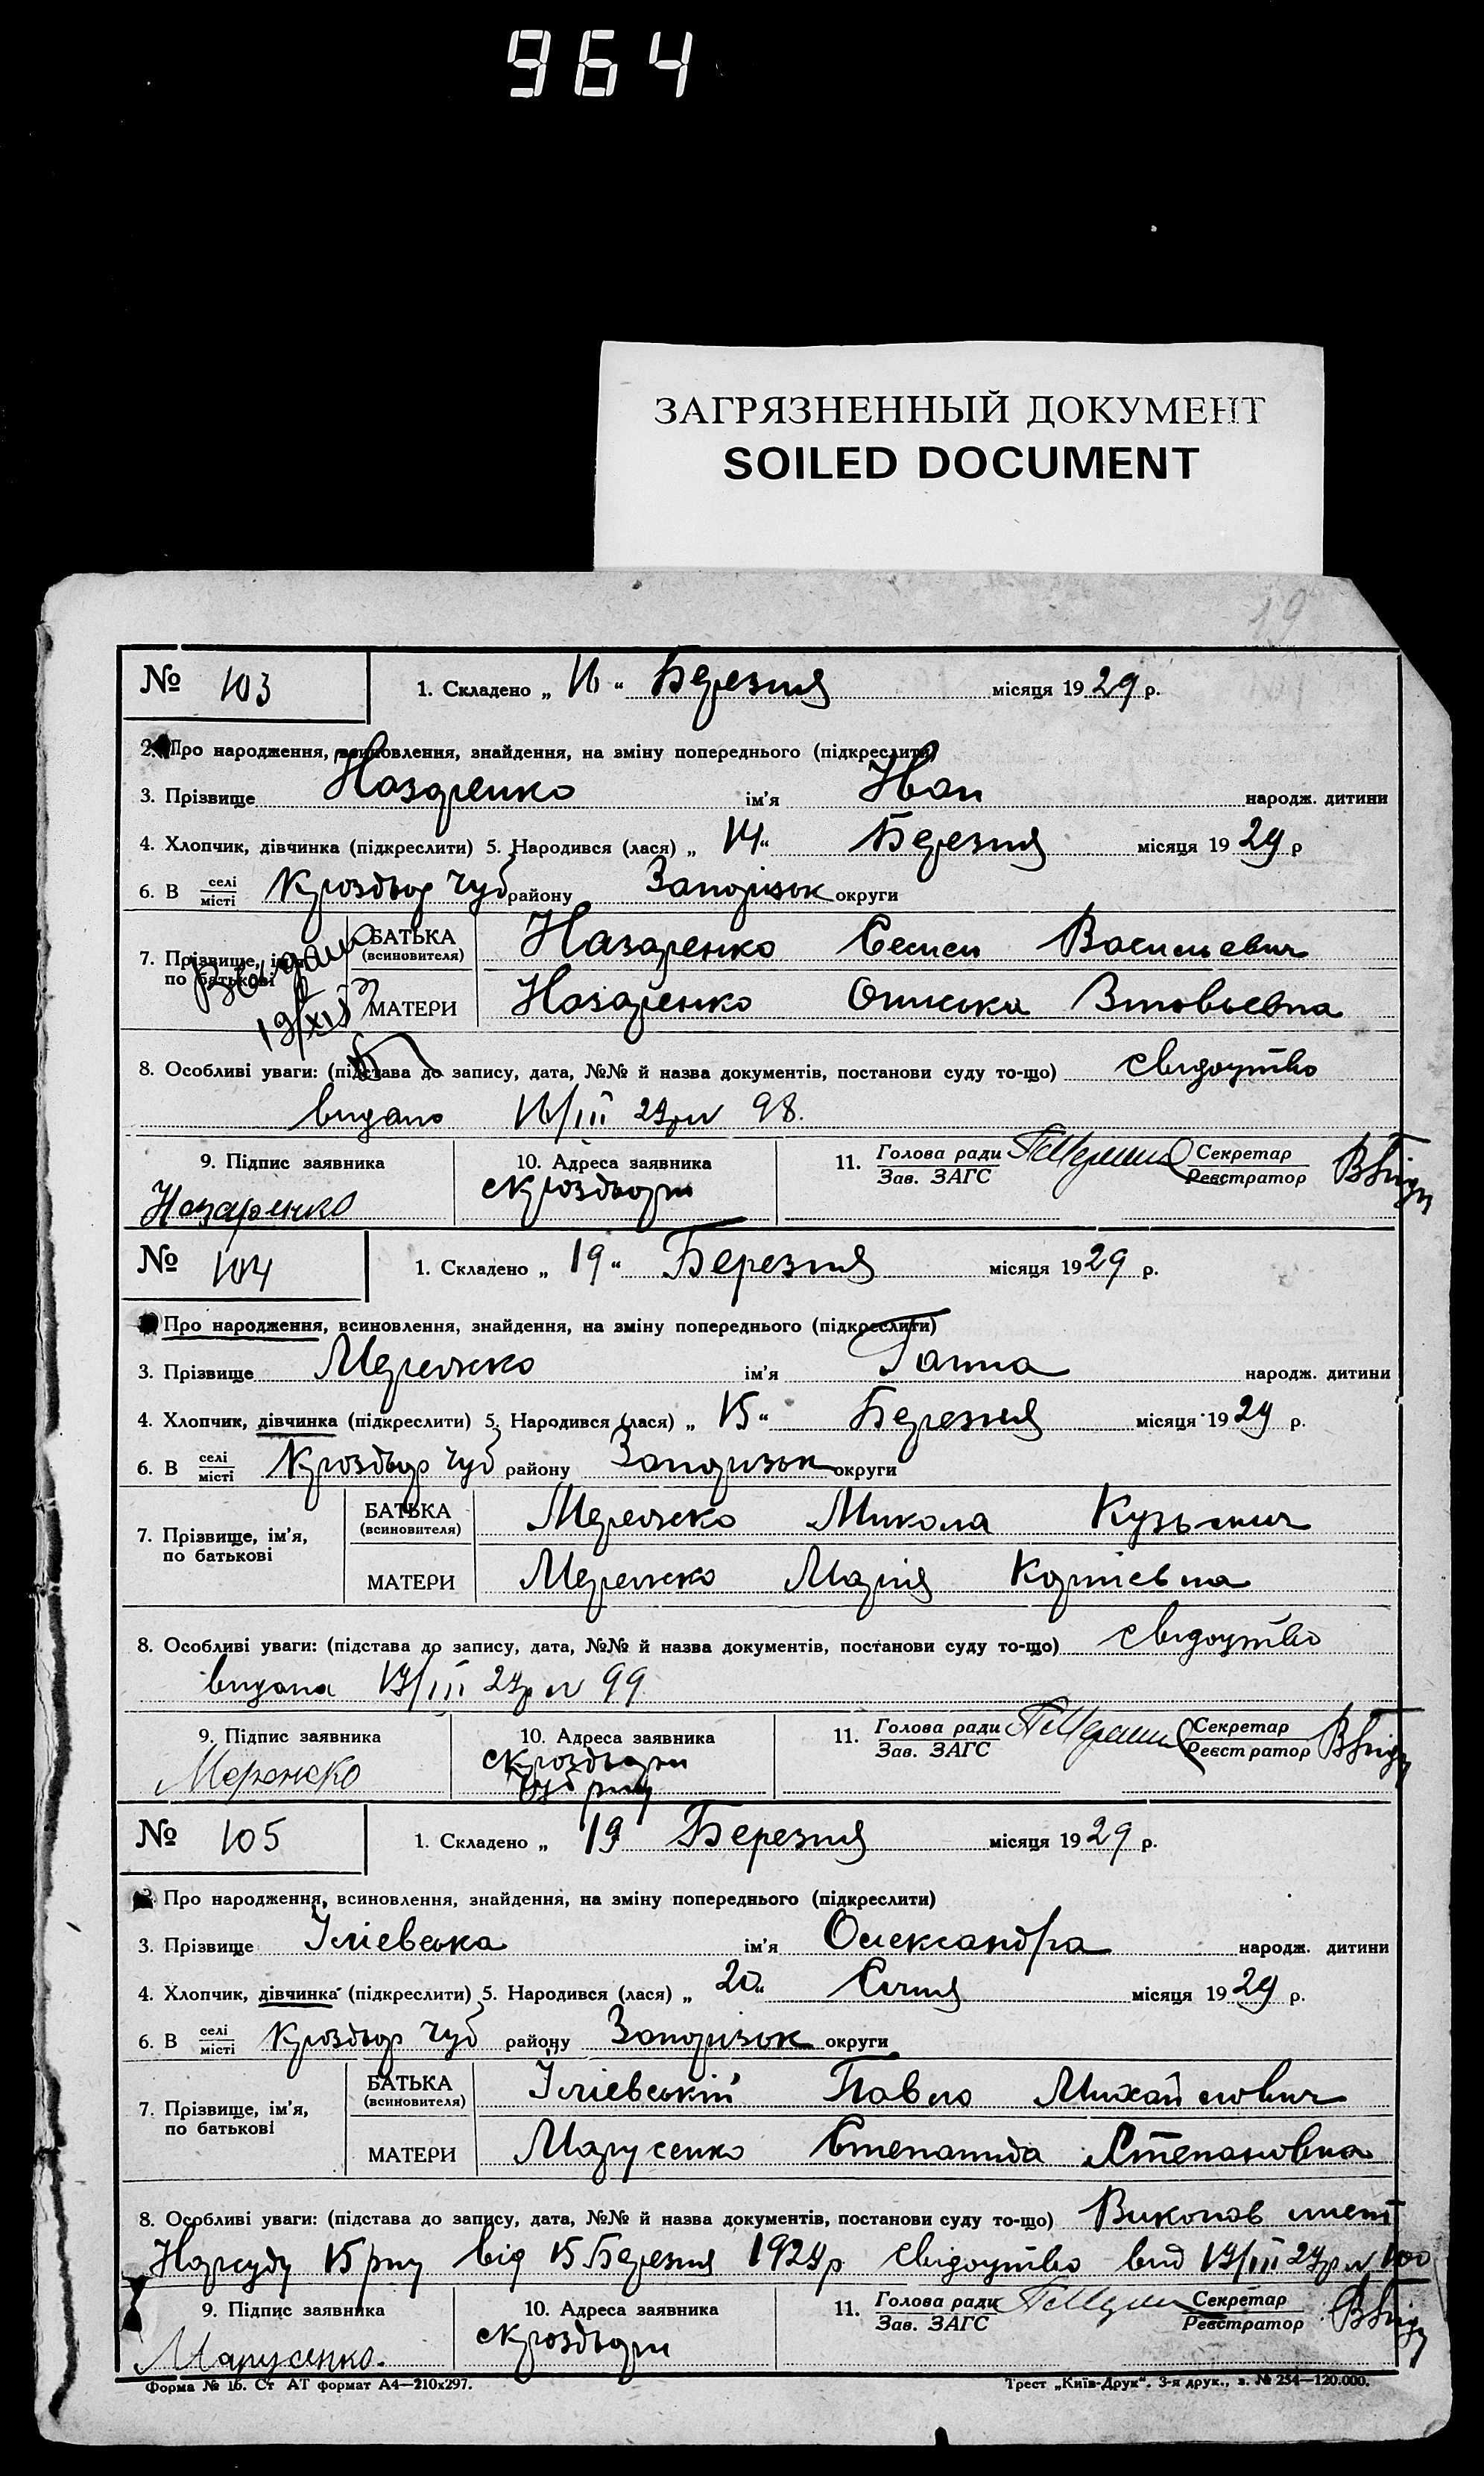 964
ЗАГРЯЗНЕННЫЙ ДОКУМЕНТ
SOILED DOCUMENT
19
№ 103 1. Складено „ 16 “ Березня місяця 19 29 р.
2. Про народження, всиновлення, знайдення, на зміну попереднього (підкреслити)
3. Прізвище Назаренко ім'я Іван народж. дитини
4. Хлопчик, дівчинка (підкреслити) 5. Народився (лася) „ 14 “ Березня місяця 19 29 р
6. В селі/місті району Запорізьк округи
7. Прізвище, ім'я по батькові БАТЬКА (всиновителя) Назаренко Василь евич
МАТЕРИ Назаренко
19/XII
8. Особливі уваги: (підстава до запису, дата, №№ й назва документів, постанови суду то-що) свидоцтво
видано 16/III 29р № 98.
9. Підпис заявника 10. Адреса заявника 11. Голова ради/Зав. ЗАГС Секретар/Реєстратор
Назаренко
№ 104 1. Складено „ 19 “ Березня місяця 19 29 р.
Про народження, всиновлення, знайдення, на зміну попереднього (підкреслити)
3. Прізвище Мережко ім'я Ганна народж. дитини
4. Хлопчик, дівчинка (підкреслити) 5. Народився (лася) „ 15 “ Березня місяця 19 29 р.
6. В селі/місті району Запоризьк округи
7. Прізвище, ім'я, по батькові БАТЬКА (всиновителя) Мережко Микола Кузьмич
МАТЕРИ Мережко Марія Корніевна
8. Особливі уваги: (підстава до запису, дата, №№ й назва документів, постанови суду то-що) свидоцтво
видана 19/III 29р № 99
9. Підпис заявника 10. Адреса заявника 11. Голова ради/Зав. ЗАГС Секретар/Реєстратор
Мережко
№ 105 1. Складено „ 19 Березня місяця 19 29 р.
2. Про народження, всиновлення, знайдення, на зміну попереднього (підкреслити)
3. Прізвище Іллєвська ім'я Олександра народж. дитини
4. Хлопчик, дівчинка (підкреслити) 5. Народився (лася) „ 20 “ Січня місяця 19 29 р.
6. В селі/місті району Запоризьк округи
7. Прізвище, ім'я, по батькові БАТЬКА (всиновителя) Іллєвський Павло Михайлович
МАТЕРИ Марусенко Степанида Степановна
8. Особливі уваги: (підстава до запису, дата, №№ й назва документів, постанови суду то-що) Виконав лист
Нарсуду 15 рну від 15 Березня 1929р свідоцтво вид 19/III 29р № 100
9. Підпис заявника 10. Адреса заявника 11. Голова ради/Зав. ЗАГС Секретар/Реєстратор
Марусенко.
Форма № 16. Ст АТ формат А4—210х297. Трест „Київ-Друк“. 3-я друк., з. № 254—120.000.